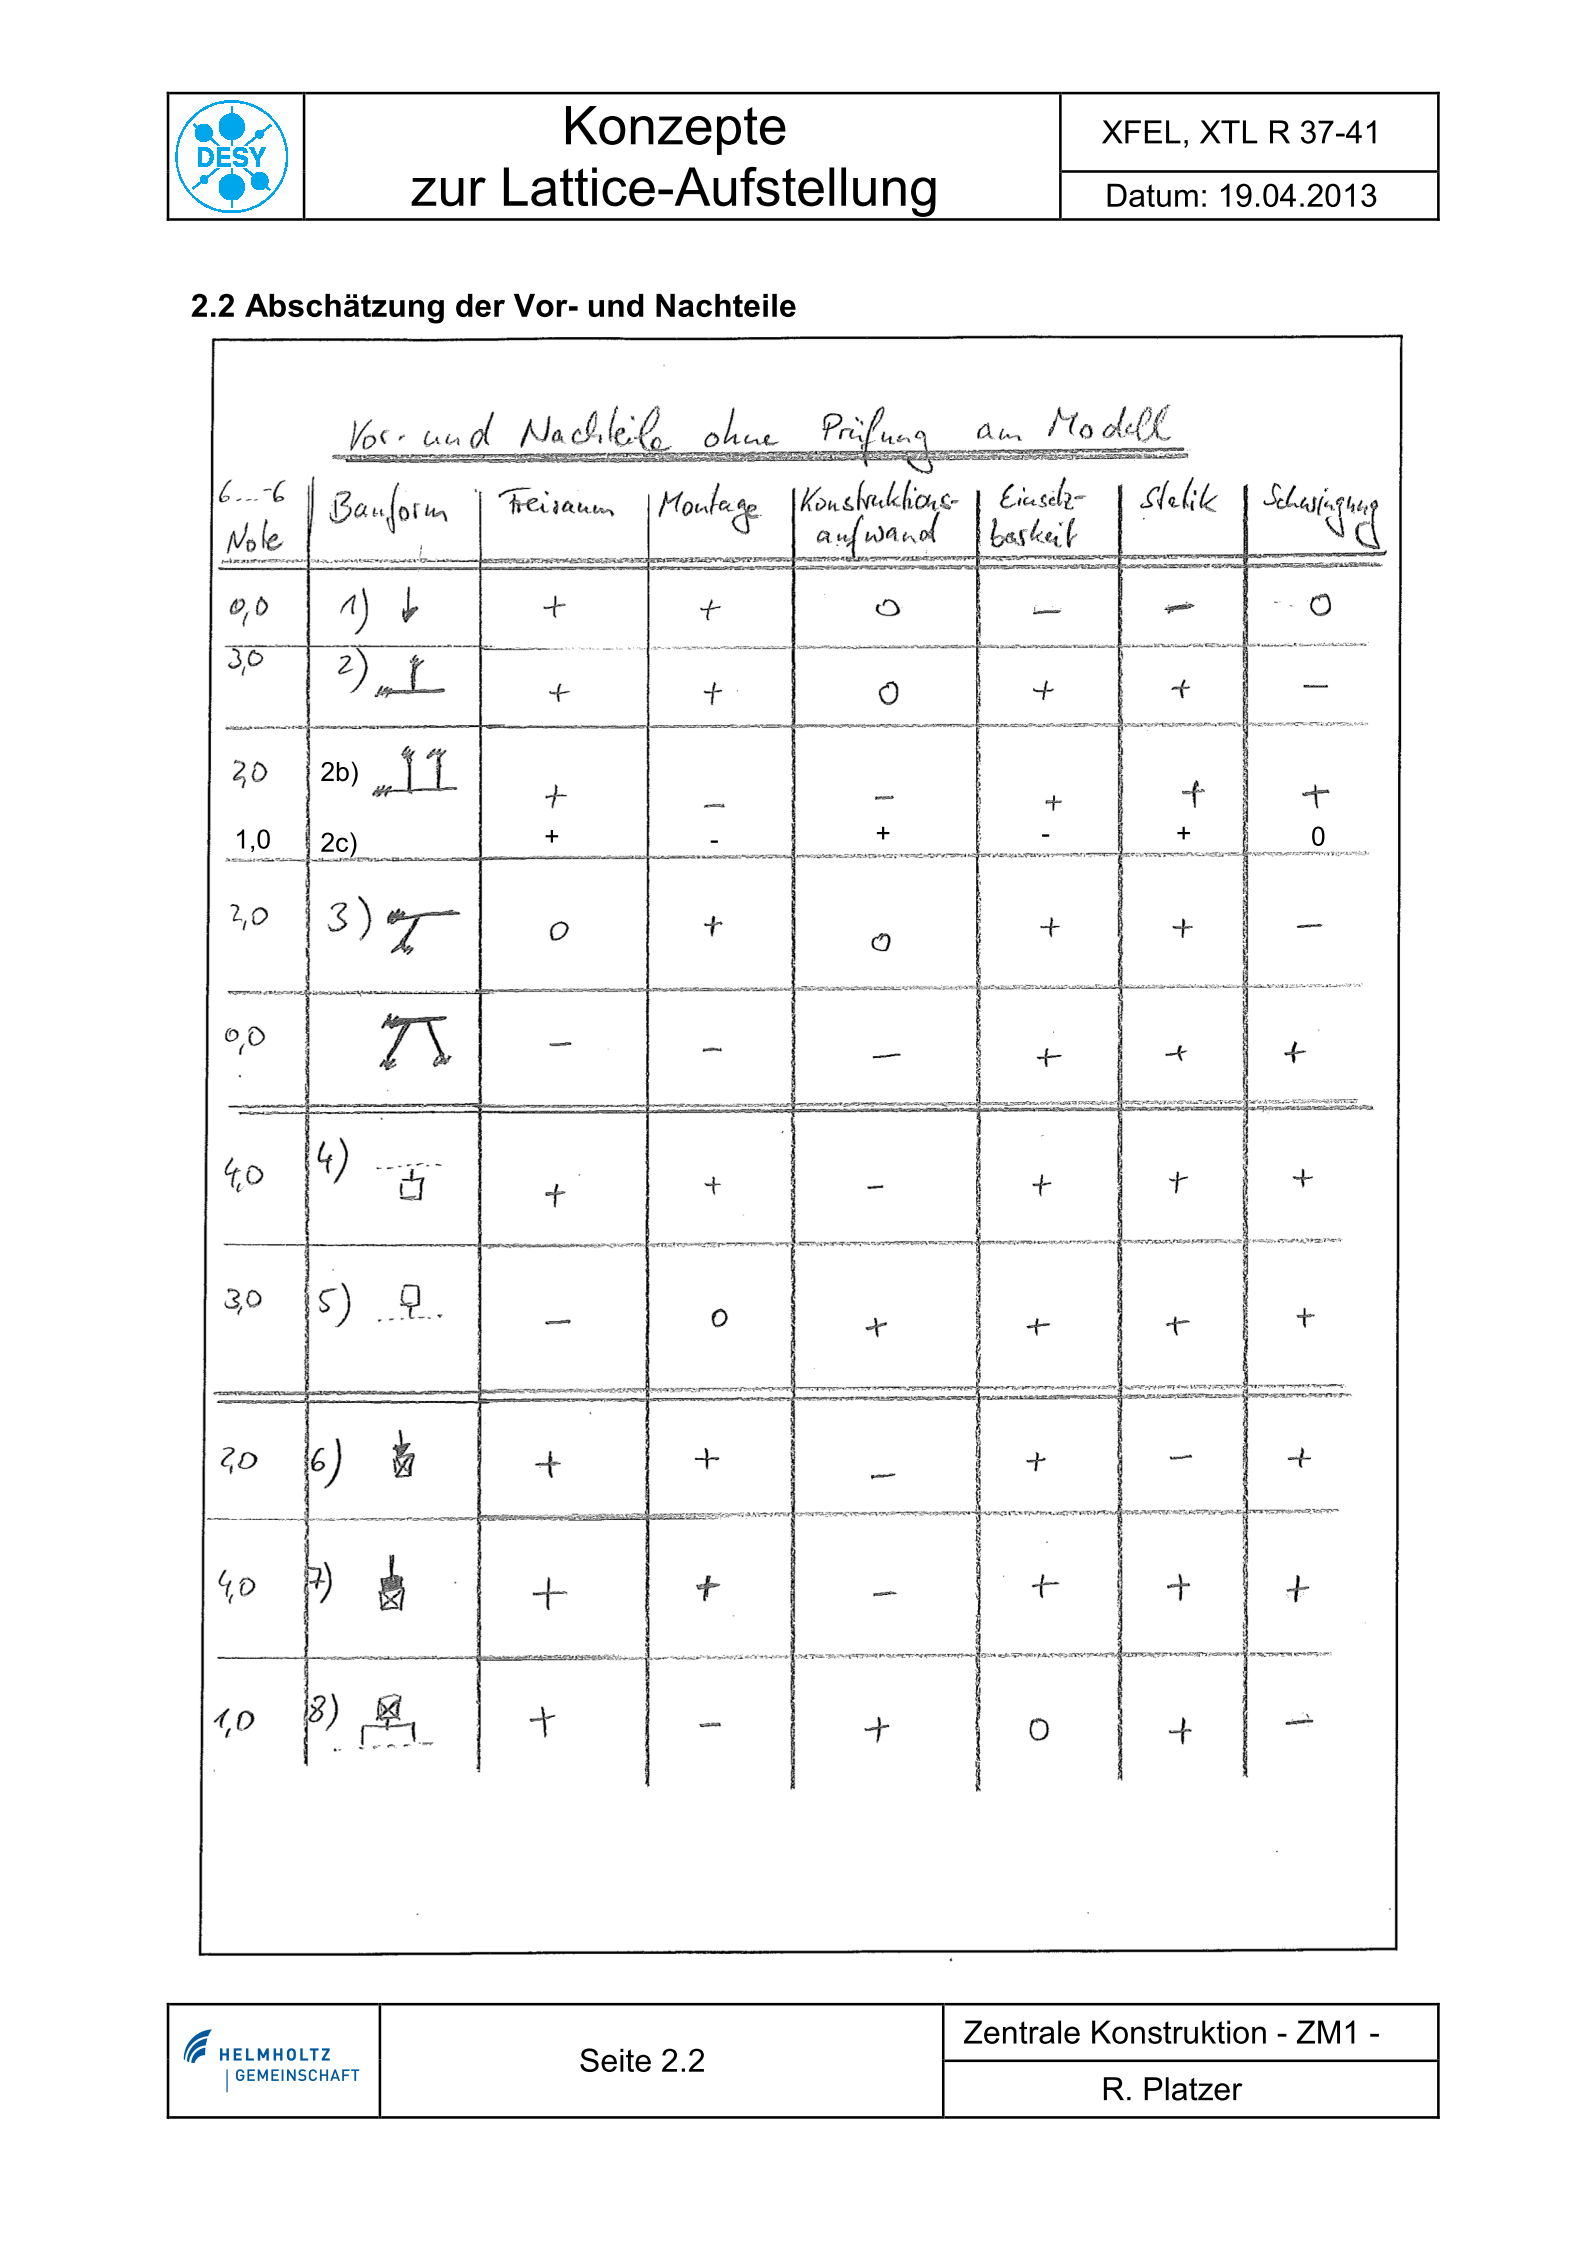 DESY
Konzepte
zur Lattice-Aufstellung
XFEL, XTL R 37-41
Datum: 19.04.2013
2.2 Abschätzung der Vor- und Nachteile
Vor- und Nachteile ohne Prüfung am Modell
6...-6 Note Bauform Freiraum Montage Konstruktions-aufwand Einsetz-barkeit Statik Schwingung
0,0 1) + + o - - o
3,0 2) + + o + + -
2,0 2b) + - - + + +
1,0 2c) + - + - + 0
2,0 3) o + o + + -
0,0 - - - + + +
4,0 4) + + - + + +
3,0 5) - o + + + +
2,0 6) + + - + - +
4,0 7) + + - + + +
1,0 8) + - + o + -
HELMHOLTZ
GEMEINSCHAFT
Seite 2.2
Zentrale Konstruktion - ZM1 -
R. Platzer